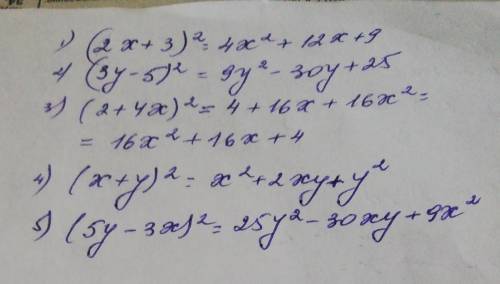 1) (2x+3)² = 4x² + 12x + 9
2) (3y-5)² = 9y² - 30y + 25
3) (2+4x)² = 4 + 16x + 16x² =
= 16x² + 16x + 4
4) (x+y)² = x² + 2xy + y²
5) (5y-3x)² = 25y² - 30xy + 9x²